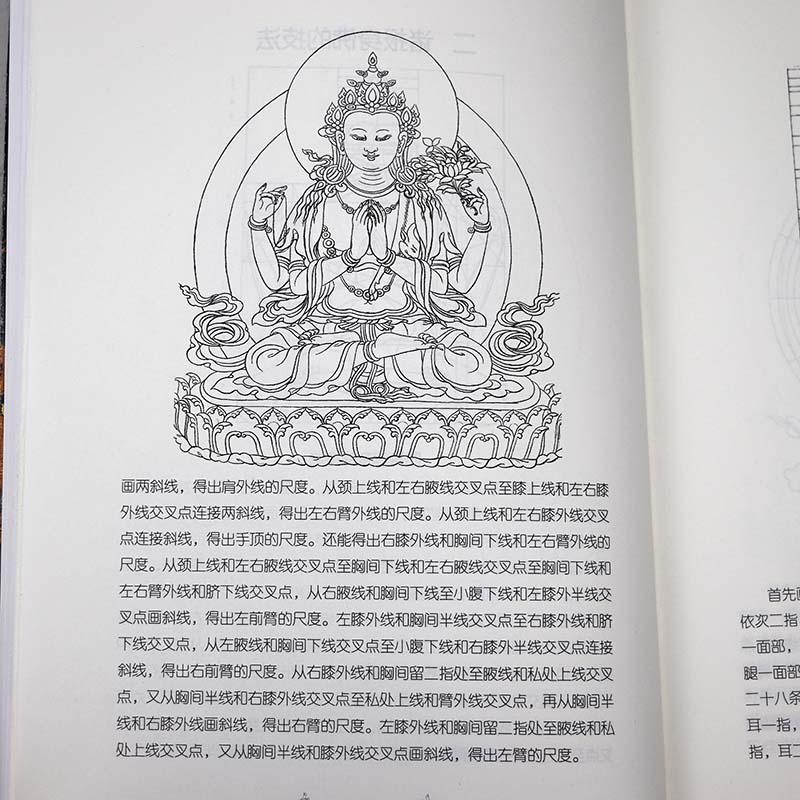 画两斜线，得出肩外线的尺度。从颈上线和左右腋线交叉点至膝上线和左右膝
外线交叉点连接两斜线，得出左右臂外线的尺度。从颈上线和左右膝外线交叉
点连接斜线，得出手顶的尺度。还能得出右膝外线和胸间下线和左右臂外线的
尺度。从颈上线和左右腋线交叉点至胸间下线和左右腋线交叉点至胸间下线和
左右臂外线和脐下线交叉点，从右腋线和胸间下线至小腹下线和左膝外半线交
叉点画斜线，得出左前臂的尺度。左膝外线和胸间半线交叉点至右膝外线和脐
下线交叉点，从左腋线和胸间下线交叉点至小腹下线和右膝外半线交叉点连接
斜线，得出右前臂的尺度。从右膝外线和胸间留二指处至腋线和私处上线交叉
点，又从胸间半线和右膝外线交叉点至私处上线和臂外线交叉点，再从胸间半
线和右膝外线画斜线，得出右臂的尺度。左膝外线和胸间留二指处至腋线和私
处上线交叉点，又从胸间半线和膝外线交叉点画斜线，得出左臂的尺度。
首先
依次二指
一面部，
腿一面部
二十八条
耳一指，
指，耳二